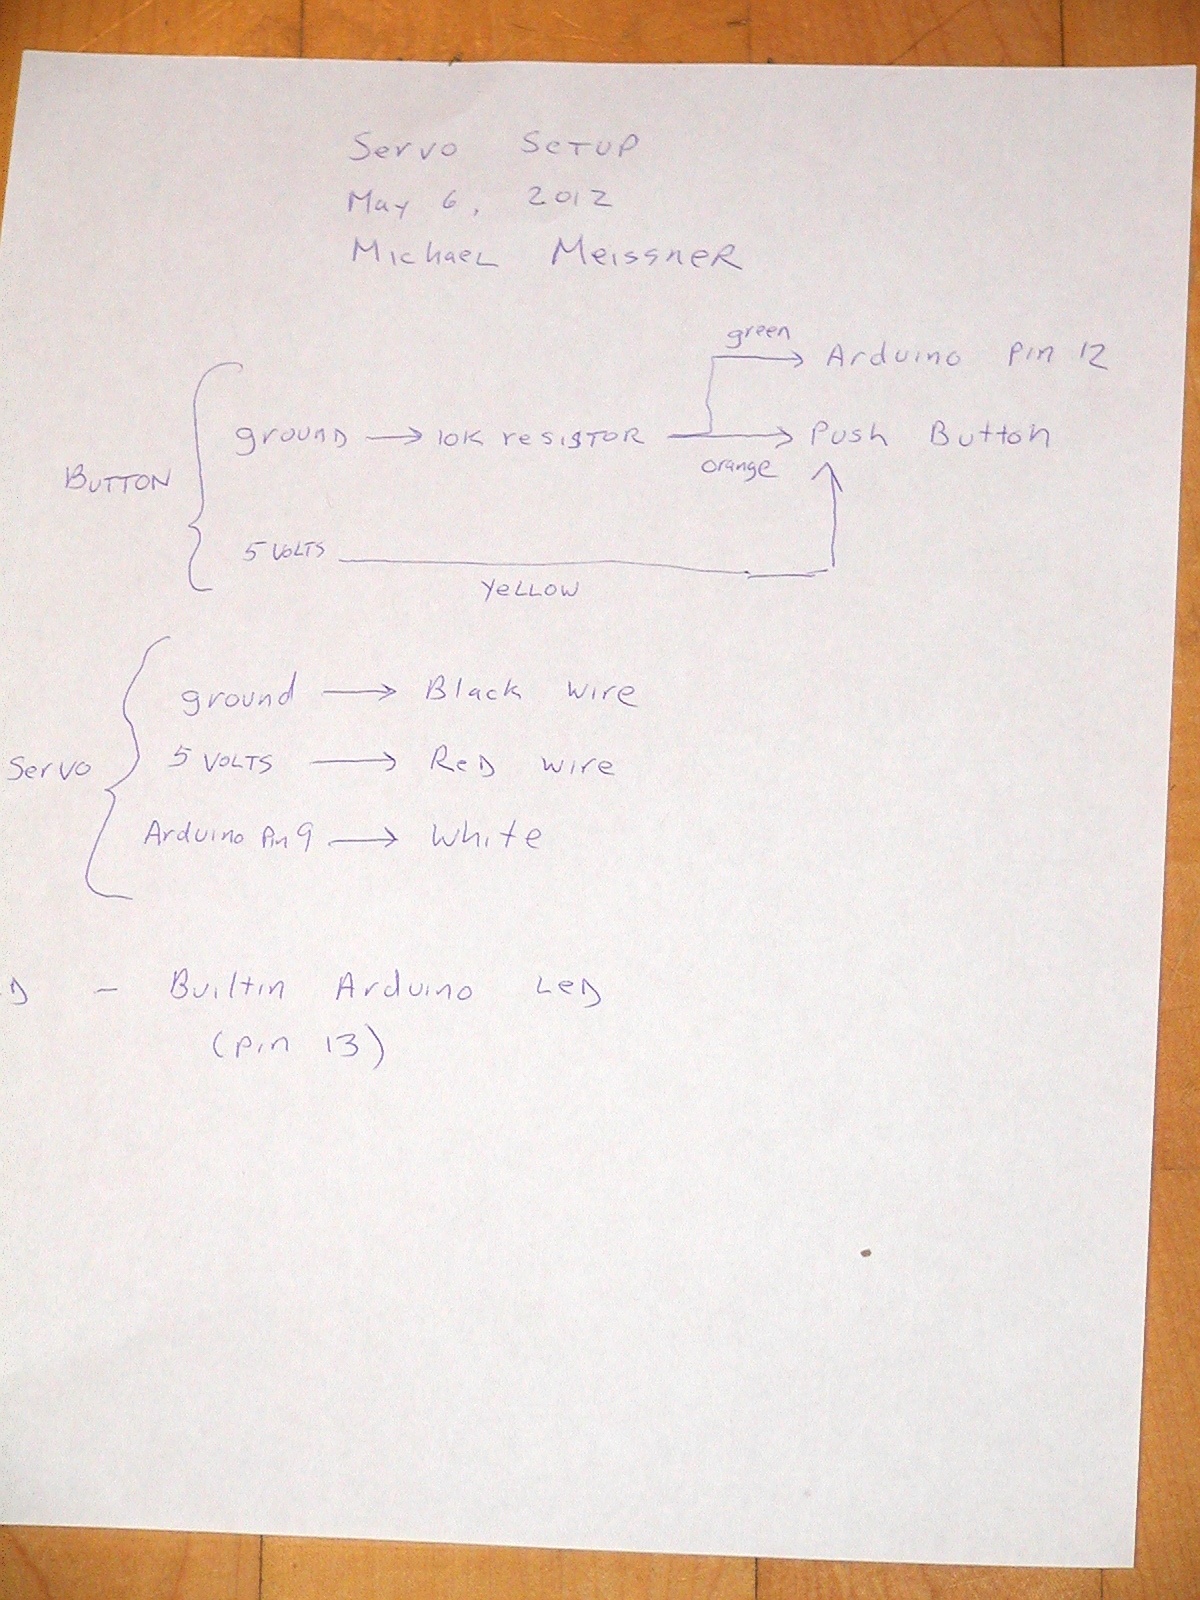 Servo Setup
May 6, 2012
Michael Meissner
green
Arduino Pin 12
ground → 10K resistor → Push Button
orange
Button
5 Volts
Yellow
ground → Black wire
5 Volts → Red wire
Servo
Arduino Pin 9 → White
D - Builtin Arduino LED
(pin 13)